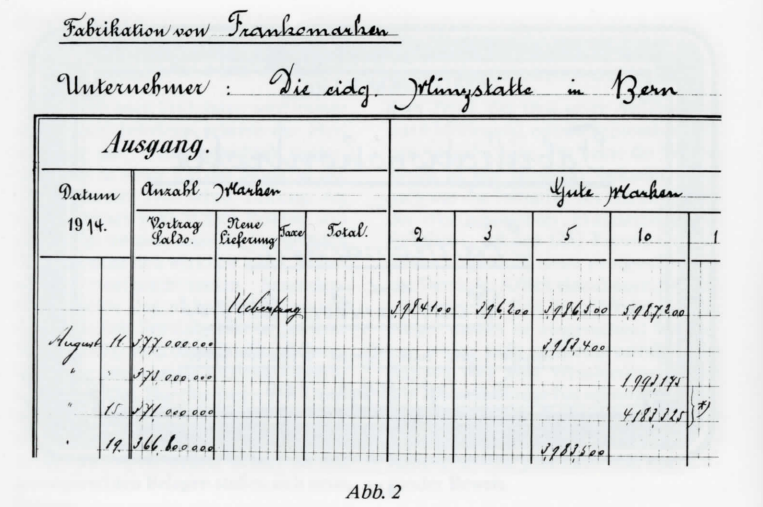 Fabrikation von Frankomarken
Unternehmer : Die eidg. Münzstätte in Bern
Ausgang.
Datum Anzahl Marken Gute Marken
1914. Vortrag Saldo. Neue Lieferung Taxe Total. 2 3 5 10 1
Uebertrag 3,984100 396,200 3,986,500 5,987,200
August 11 377.000.000 3,983,400
" " 373.000.000 1,993,175
" 15 371.000.000 4,183,325 *)
" 19. 366.800.000 3,983,500
Abb. 2